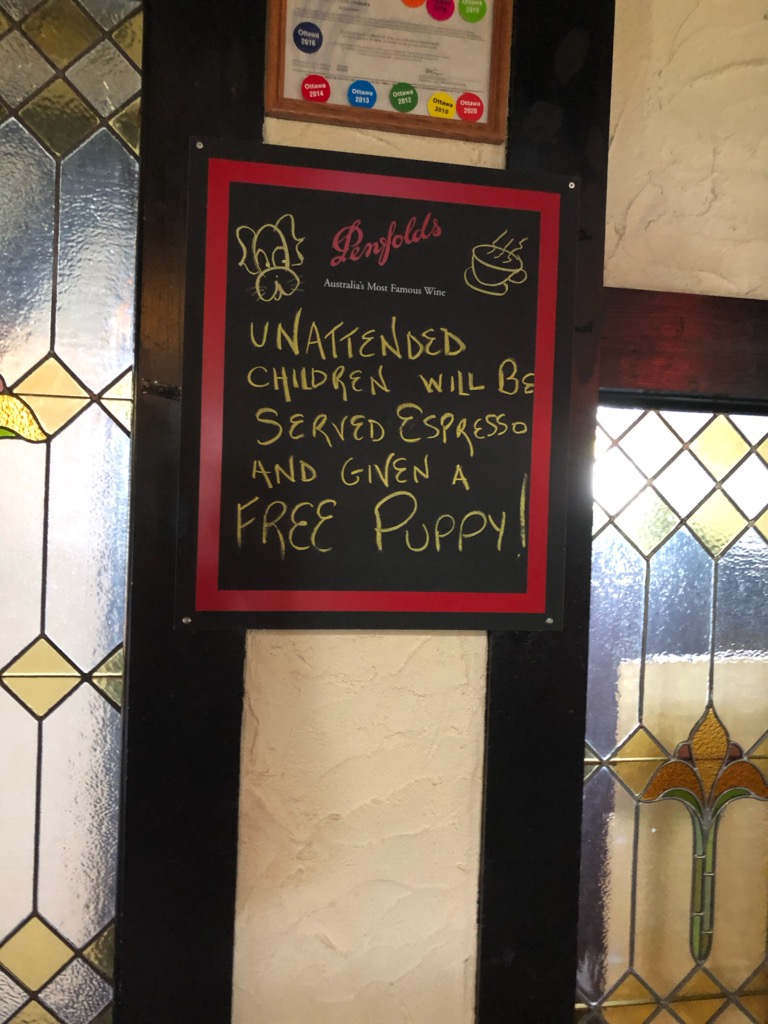 Ottawa
2016
Ottawa
2015
Ottawa
2014
Ottawa
2013
Ottawa
2012
Ottawa
2010
Ottawa
2020
Penfolds
Australia's Most Famous Wine
UNATTENDED
CHILDREN WILL BE
SERVED ESPRESSO
AND GIVEN A
FREE PUPPY!